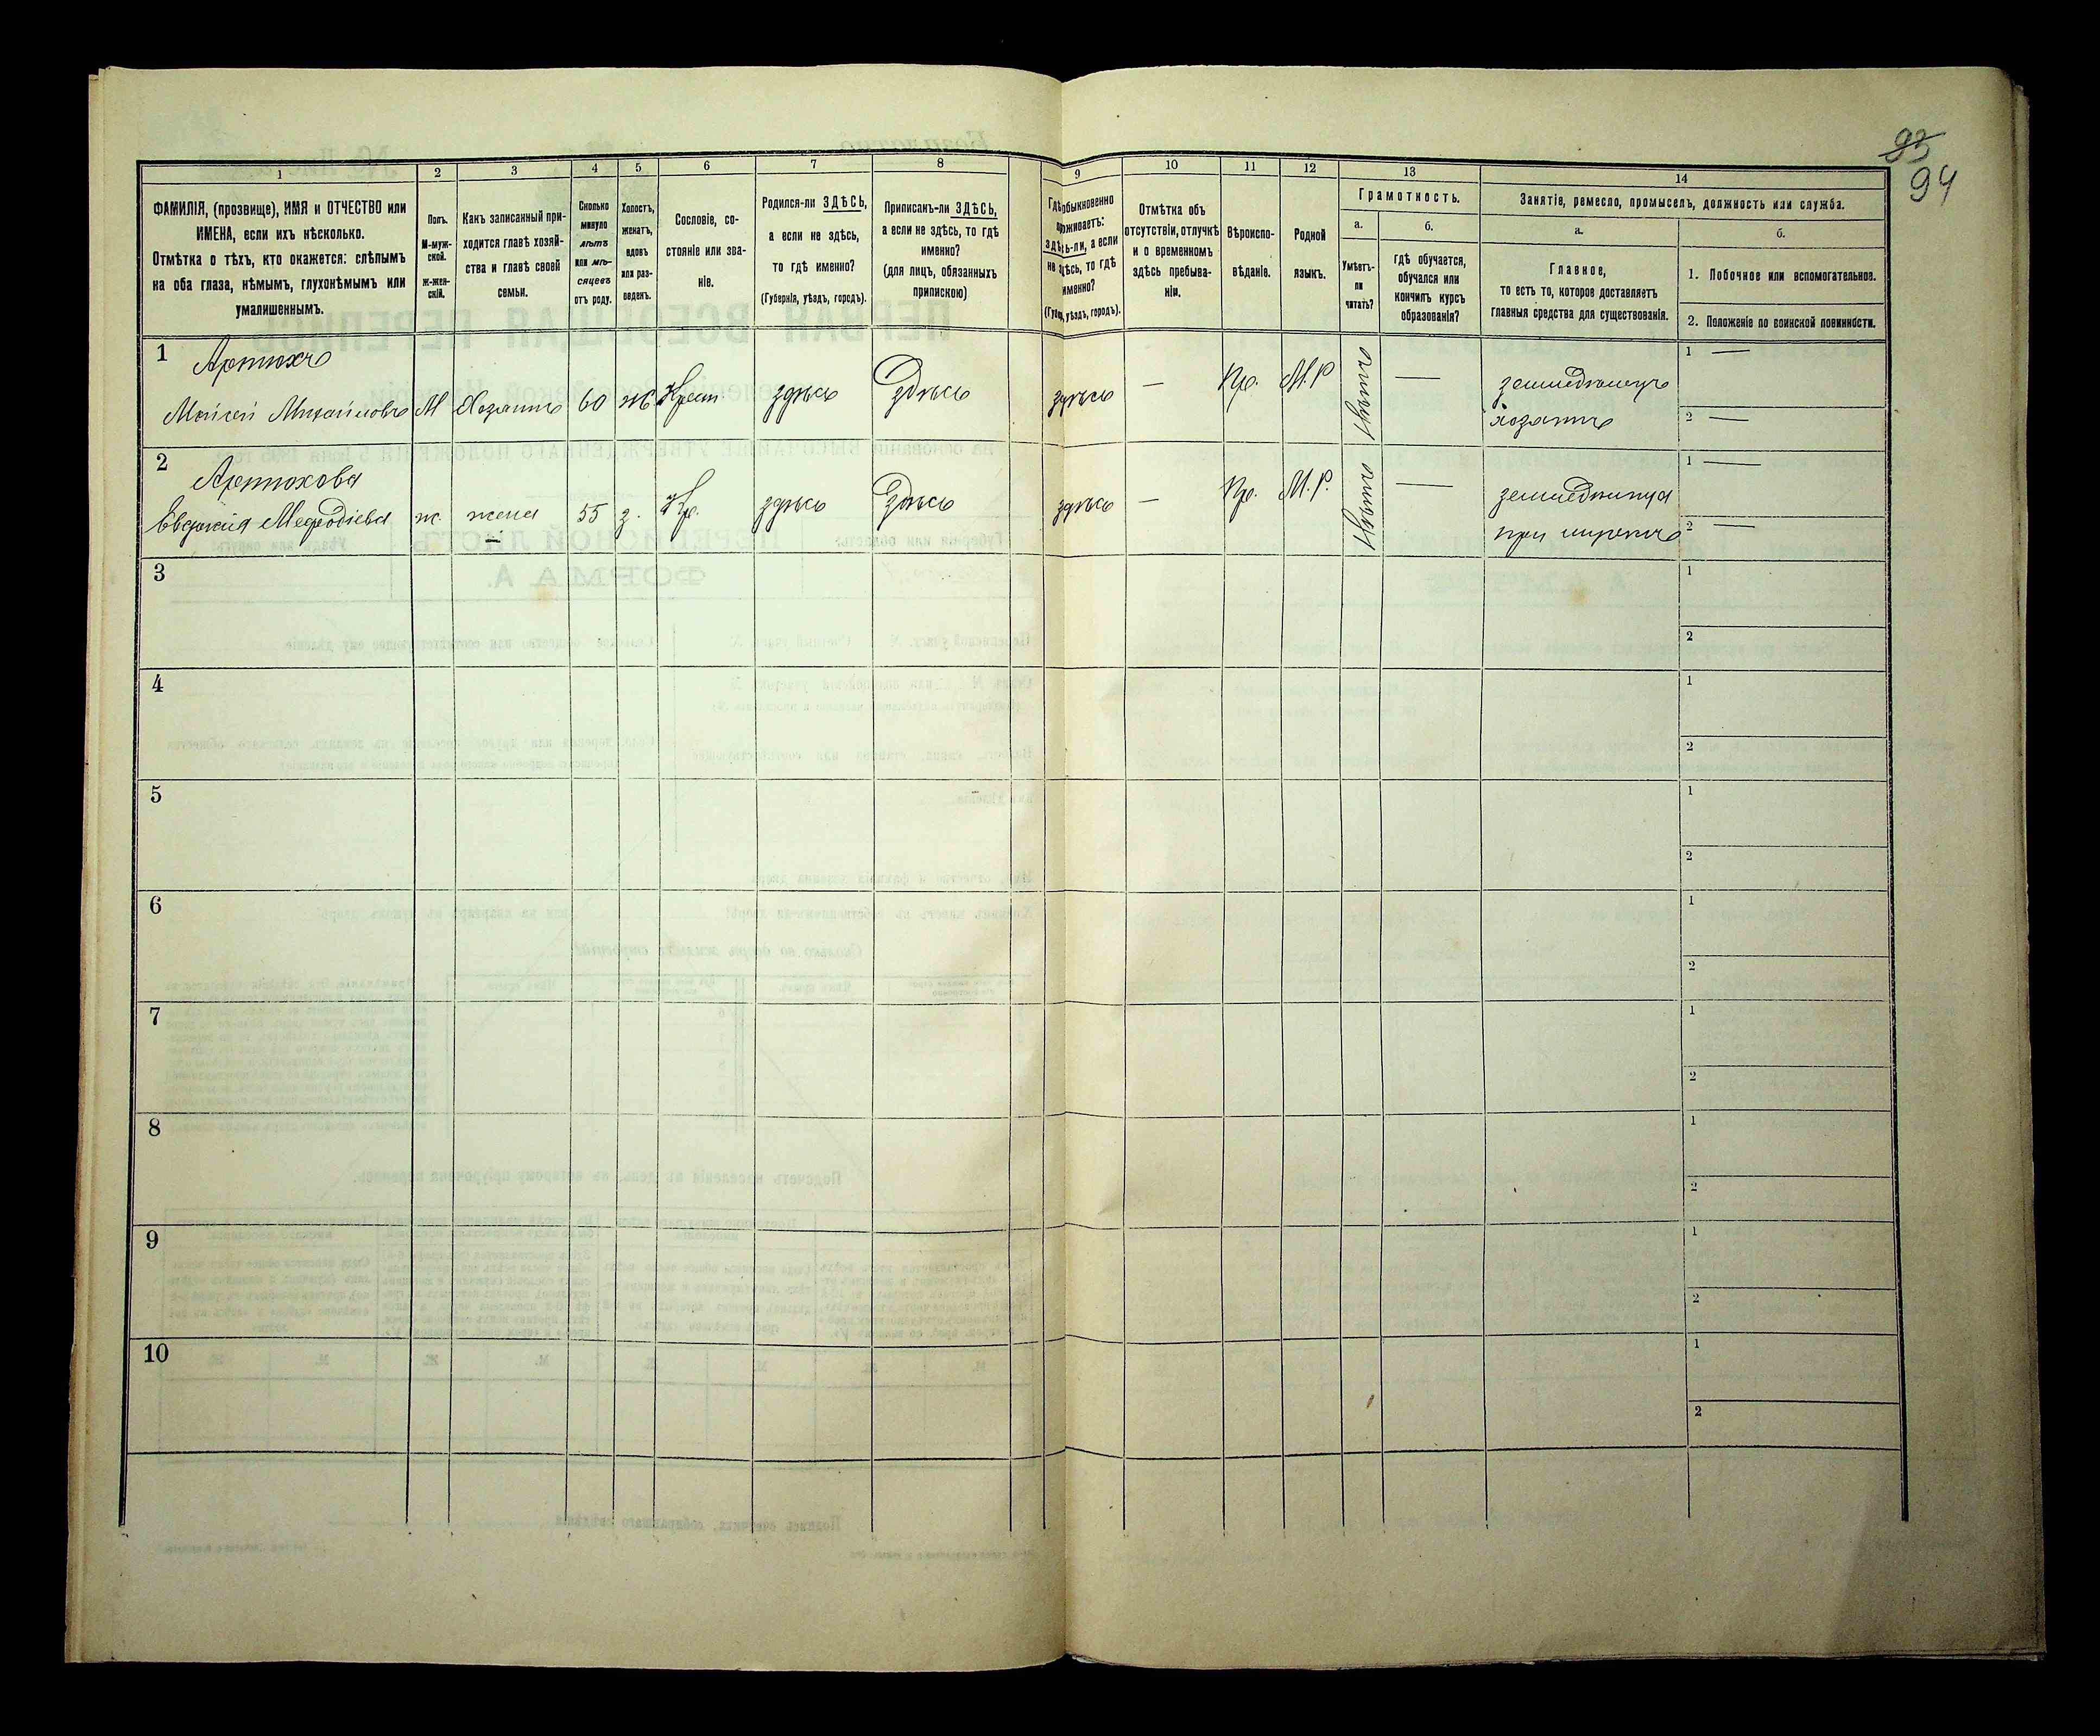 95
94
1 2 3 4 5 6 7 8 9 10 11 12 13 14
ФАМИЛІЯ, (прозвище), ИМЯ и ОТЧЕСТВО или
ИМЕНА, если ихъ нѣсколько.
Отмѣтка о тѣхъ, кто окажется: слѣпымъ
на оба глаза, нѣмымъ, глухонѣмымъ или
умалишеннымъ.
Полъ.
М-муж-
ской.
Ж-жен-
скій.
Какъ записанный при-
ходится главѣ хозяй-
ства и главѣ своей
семьи.
Сколько
минуло
лѣтъ
или мѣ-
сяцевъ
отъ роду.
Холостъ,
женатъ,
вдовъ
или раз-
веденъ.
Сословіе, со-
стояніе или зва-
ніе.
Родился-ли ЗДѢСЬ,
а если не здѣсь,
то гдѣ именно?
(Губернія, уѣздъ, городъ).
Приписанъ-ли ЗДѢСЬ,
а если не здѣсь, то гдѣ
именно?
(для лицъ, обязанныхъ
припискою)
Гдѣ обыкновенно
проживаетъ:
здѣсь-ли, а если
не здѣсь, то гдѣ
именно?
(Губ., уѣздъ, городъ).
Отмѣтка объ
отсутствіи, отлучкѣ
и о временномъ
здѣсь пребыва-
ніи.
Вѣроиспо-
вѣданіе.
Родной
языкъ.
Грамотность.
а.
Умѣетъ-
ли
читать?
б.
гдѣ обучается,
обучался или
кончилъ курсъ
образованія?
Занятіе, ремесло, промыселъ, должность или служба.
а.
Главное,
то есть то, которое доставляетъ
главныя средства для существованія.
б.
1. Побочное или вспомогательное.
2. Положеніе по воинской повинности.
1 Артюхъ
Мойсей Михайловъ М Хозяинъ 60 Ж Крест здѣсь здѣсь здѣсь — Пр. М.Р нѣтъ — земледѣлецъ
хозяинъ
1 —
2 —
2 Артюхова
Евдокія Мефодіева ж. жена 55 з. Кр. здѣсь здѣсь здѣсь — Пр. М.Р. нѣтъ — земледѣлица
при
1 —
2 —
3 1
2
4 1
2
5 1
2
6 1
2
7 1
2
8 1
2
9 1
2
10 1
2